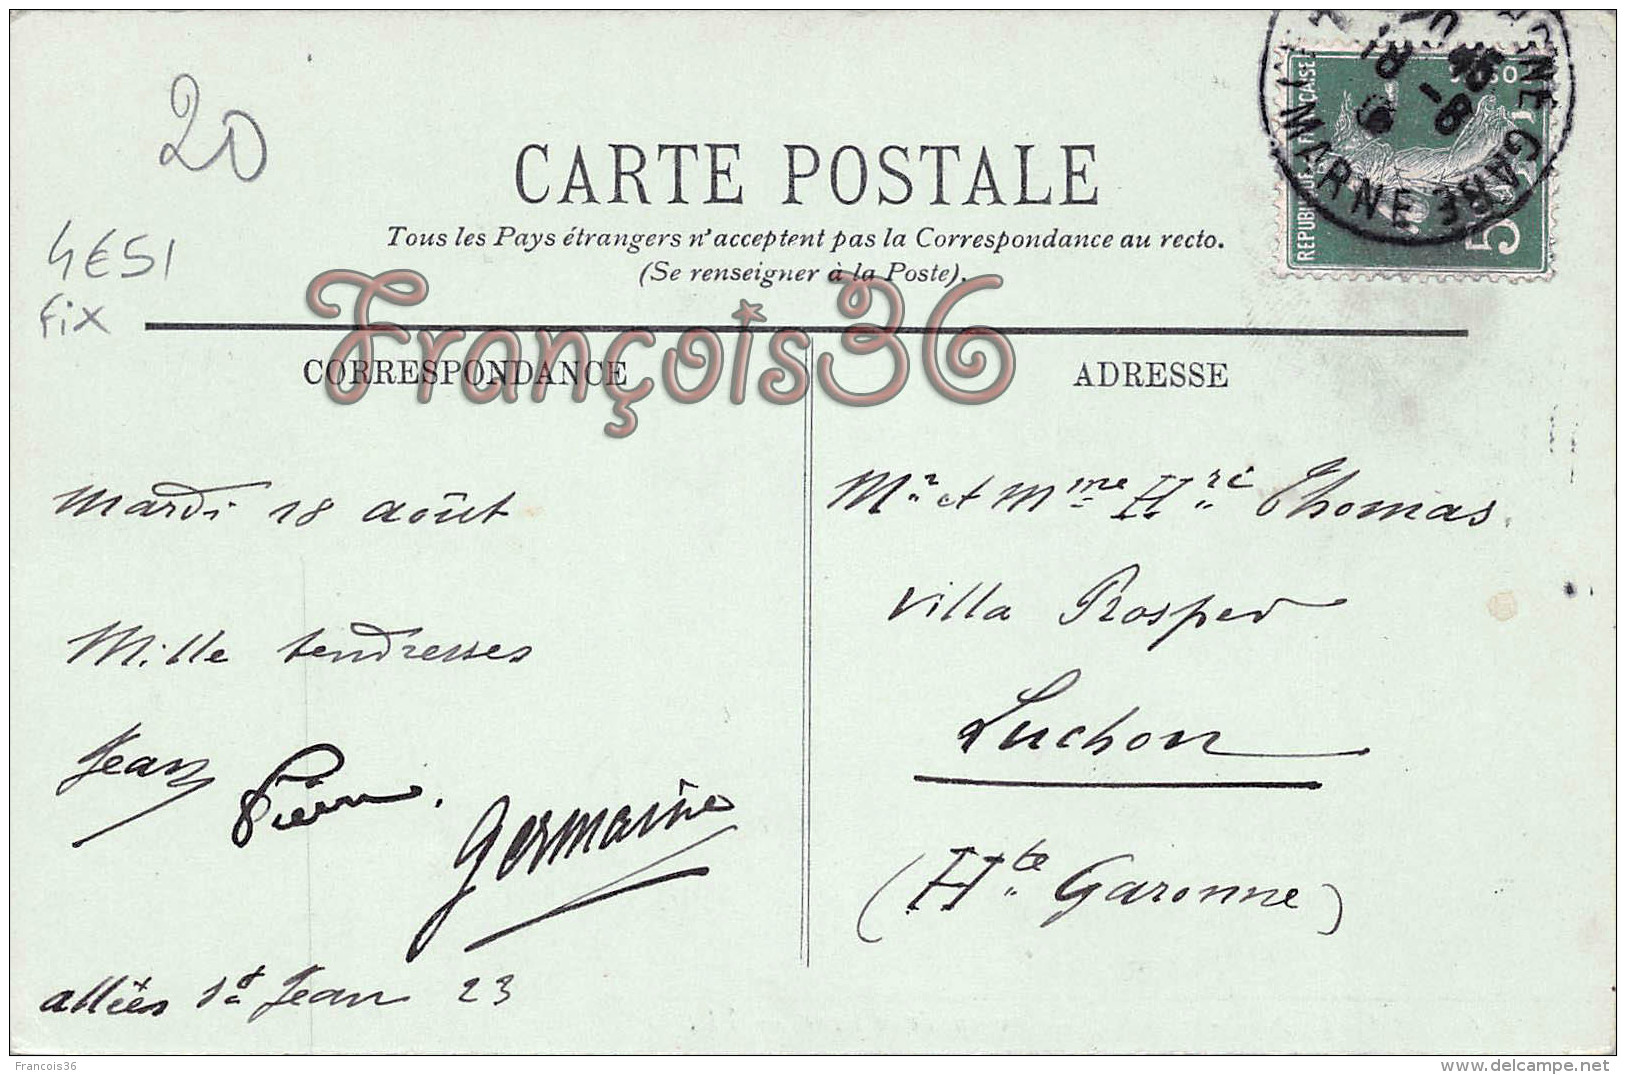 20
4E51
fix
CARTE POSTALE
Tous les Pays étrangers n'acceptent pas la Correspondance au recto.
(Se renseigner à la Poste).
RÉPUBLIQUE FRANÇAISE
5
MARNE GARE
18 -8
François36
CORRESPONDANCE
Mardi 18 août
Mille tendresses
Jean
Pierre.
Germaine
allées St Jean 23
ADRESSE
Mr et Mme Hri Thomas
Villa Prosper
Luchon
(Hte Garonne)
Francois36
delcampe.net